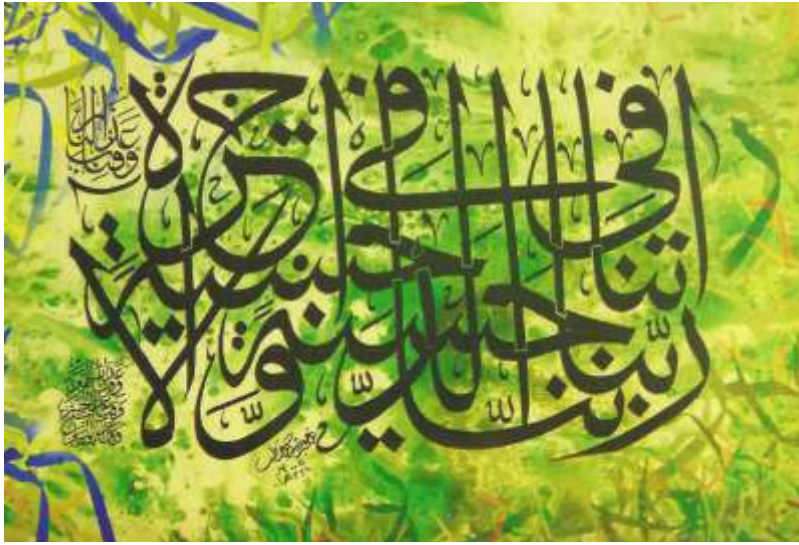 ربّنا اتنا فى الدّنيا حسنة وّفى الاخرة حسنة
وقنا عذاب النار